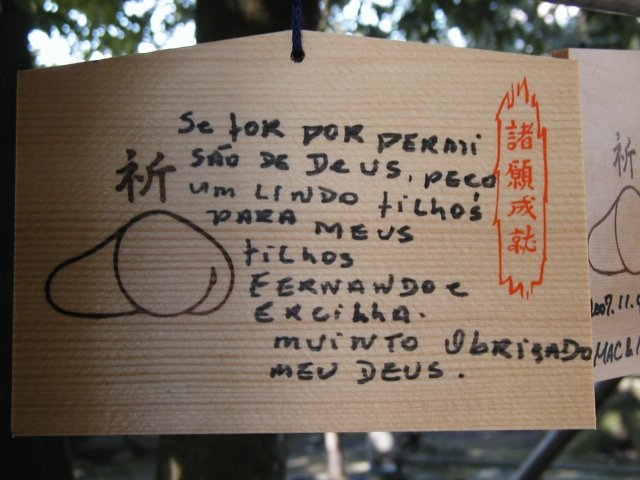 祈
Se for por permi
são de Deus, peço
um lindo filhos
para meus
filhos
Fernando e
Ercilha.
muinto obrigado
meu Deus.
諸願成就
祈
2007.11.